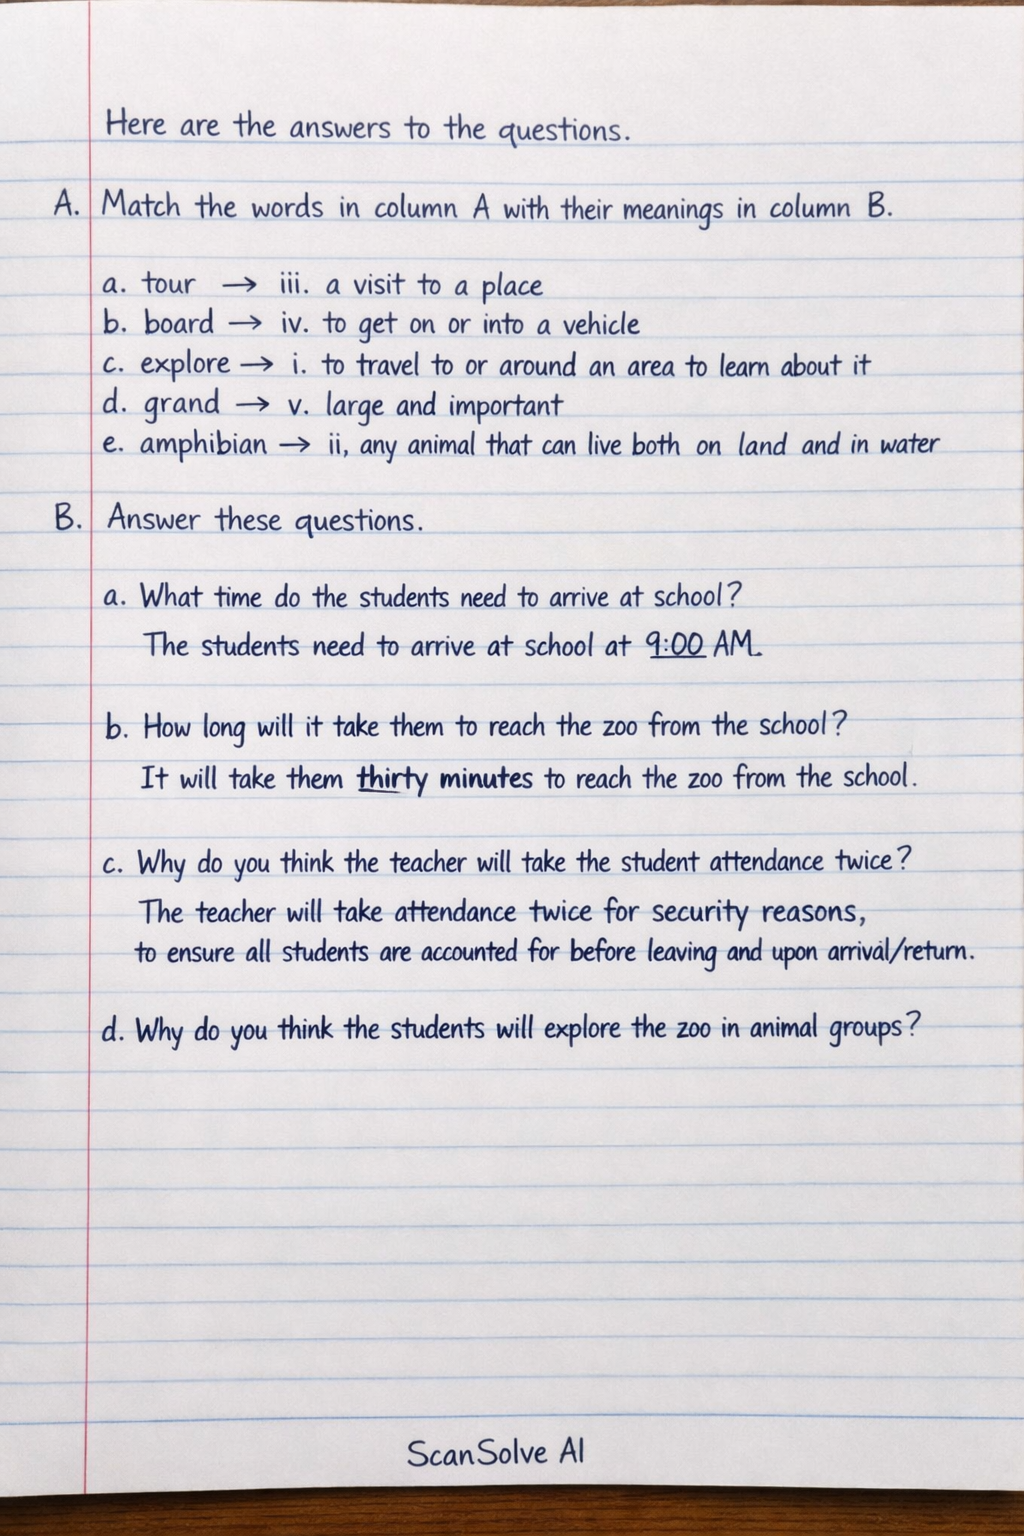 Here are the answers to the questions.
A. Match the words in column A with their meanings in column B.
a. tour → iii. a visit to a place
b. board → iv. to get on or into a vehicle
c. explore → i. to travel to or around an area to learn about it
d. grand → v. large and important
e. amphibian → ii, any animal that can live both on land and in water
B. Answer these questions.
a. What time do the students need to arrive at school?
The students need to arrive at school at 9:00 AM.
b. How long will it take them to reach the zoo from the school?
It will take them thirty minutes to reach the zoo from the school.
c. Why do you think the teacher will take the student attendance twice?
The teacher will take attendance twice for security reasons,
to ensure all students are accounted for before leaving and upon arrival/return.
d. Why do you think the students will explore the zoo in animal groups?
ScanSolve AI